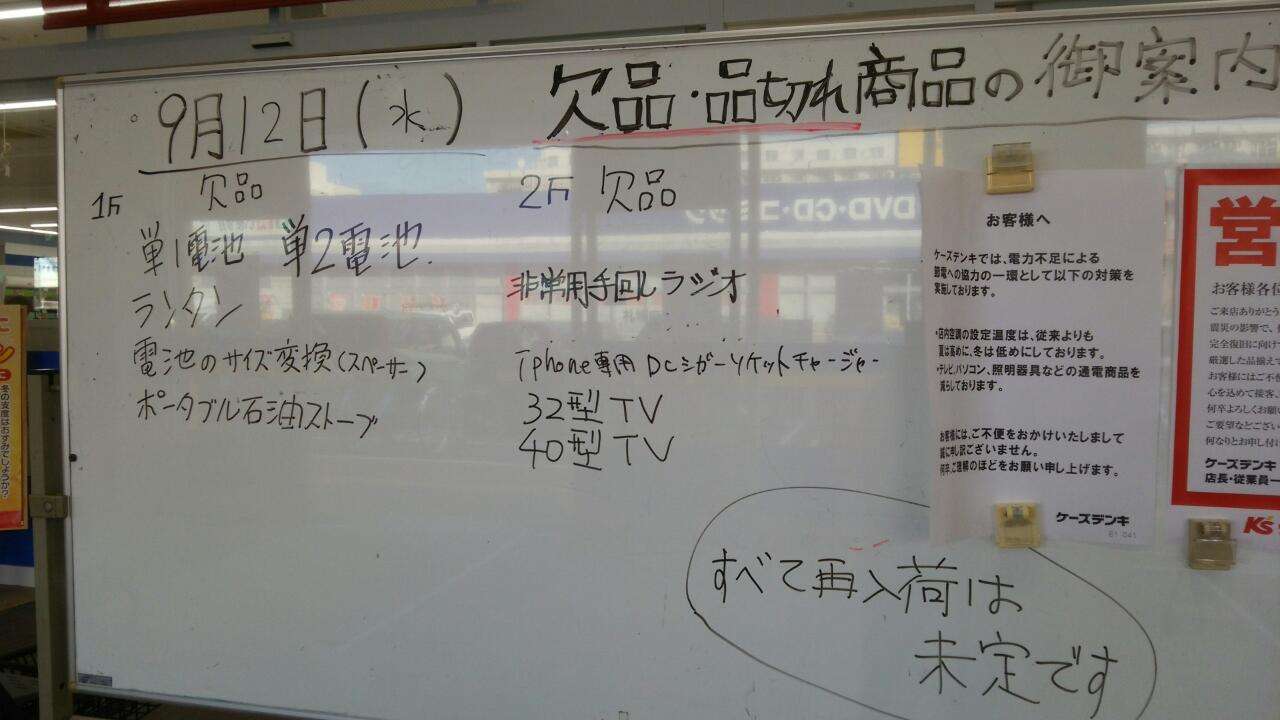 9月12日(水) 欠品・品切れ商品の御案内
1F 欠品
単1電池 単2電池
ランタン
電池のサイズ変換(スペーサー)
ポータブル石油ストーブ
2F 欠品
非常用手回しラジオ
iphone専用 DCシガーソケットチャージャー
32型TV
40型TV
すべて再入荷は
未定です
DVD・CD・コミック
お客様へ
ケーズデンキでは、電力不足による
節電への協力の一環として以下の対策を
実施しております。
・店内空調の設定温度は、従来よりも
夏は高めに、冬は低めにしております。
・テレビ、パソコン、照明器具などの通電商品を
減らしております。
お客様には、ご不便をおかけいたしまして
誠に申し訳ございません。
何卒、ご理解のほどをお願い申し上げます。
ケーズデンキ
営
お客様各位
ご来店ありがとう
震災の影響で、
完全復旧に向け
厳選した品揃え
お客様にはご不便
心を込めて接客、
何卒よろしくお願
ご要望などござい
何なりとお申し付け
ケーズデンキ
店長・従業員一
K's
冬の支度はおすみでしょうか?